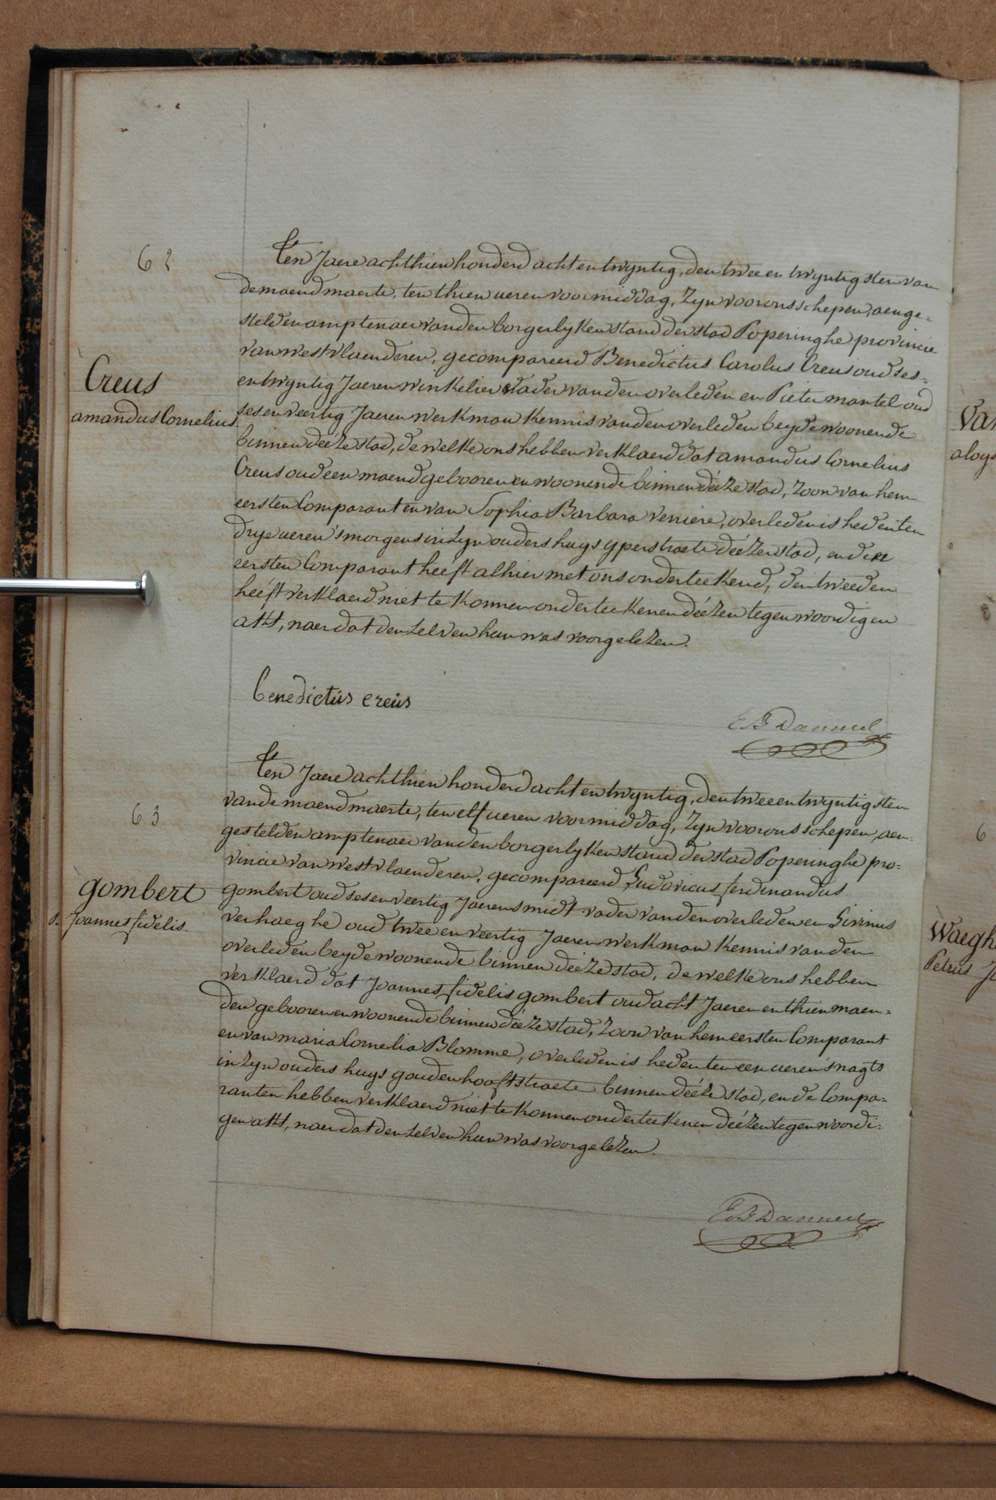 62
Ten Jaere achthien honderd acht en twyntig, den twee en twyntigsten van
de maend maerte, ten thien ueren voormiddag, Zyn voor ons schepen, aenge-
stelden amptenaer van den borgerlyken stand der stad Poperinghe provincie
van westvlaenderen, gecompareerd Benedictus Carolus Creus oud ses-
entwyntig Jaeren winkelier vader van den overleden en Pieter mantel oud
ses en veertig Jaeren werkman kennis van den overleden beyde woonende
binnen déeze stad, de welke ons hebben verklaerd dat amandus Cornelius
Creus oud een maend gebooren en woonende binnen déeze stad, Zoon van hem
eersten Comparant en van Sophia Barbara Veniere, overleden is heden ten
drye ueren 's morgens in zyn ouders huys yperstraete déézer stad, en den
eersten Comparant heeft alhier met ons onderteekend, den tweeden
heéft verklaerd niet te konnen onderteekenen déézen tegenwoordigen
akt, naer dat den zelven hun was voorgelezen.
Creus
amandus Cornelius
Benedictus creus
E B Danneel
63
Ten Jaere achthien honderd acht en twyntig, den twee en twyntigsten
van de maend maerte, ten elf ueren voormiddag, Zyn voor ons schepen, aen-
gestelden amptenaer van den borgerlyken stand der stad Poperinghe pro-
vincie van westvlaenderen, gecompareerd Ludovicus ferdinandus
gombert oud ses en veertig Jaeren smidt vader van den overleden en Livinus
verhaeghe oud twee en veertig Jaeren werkman kennis van den
overleden beyde woonende binnen déeze stad, de welke ons hebben
verklaerd dat Joannes fidelis gombert oud acht Jaeren en thien maen-
den gebooren en woonende binnen déeze stad, Zoon van hem eersten Comparant
en van maria Cornelia Blomme, overleden is heden ten een ueren snagts
in zyn ouders huys gouden hooft straete binnen déeze stad, en de Compa-
ranten hebben verklaerd niet te konnen onderteekenen déézen tegenwoordi-
gen akt, naer dat den zelven hun was voorgelezen.
gombert
Joannes fidelis.
E B Danneel
Van
aloys
6
Waegh
Petrus Jo